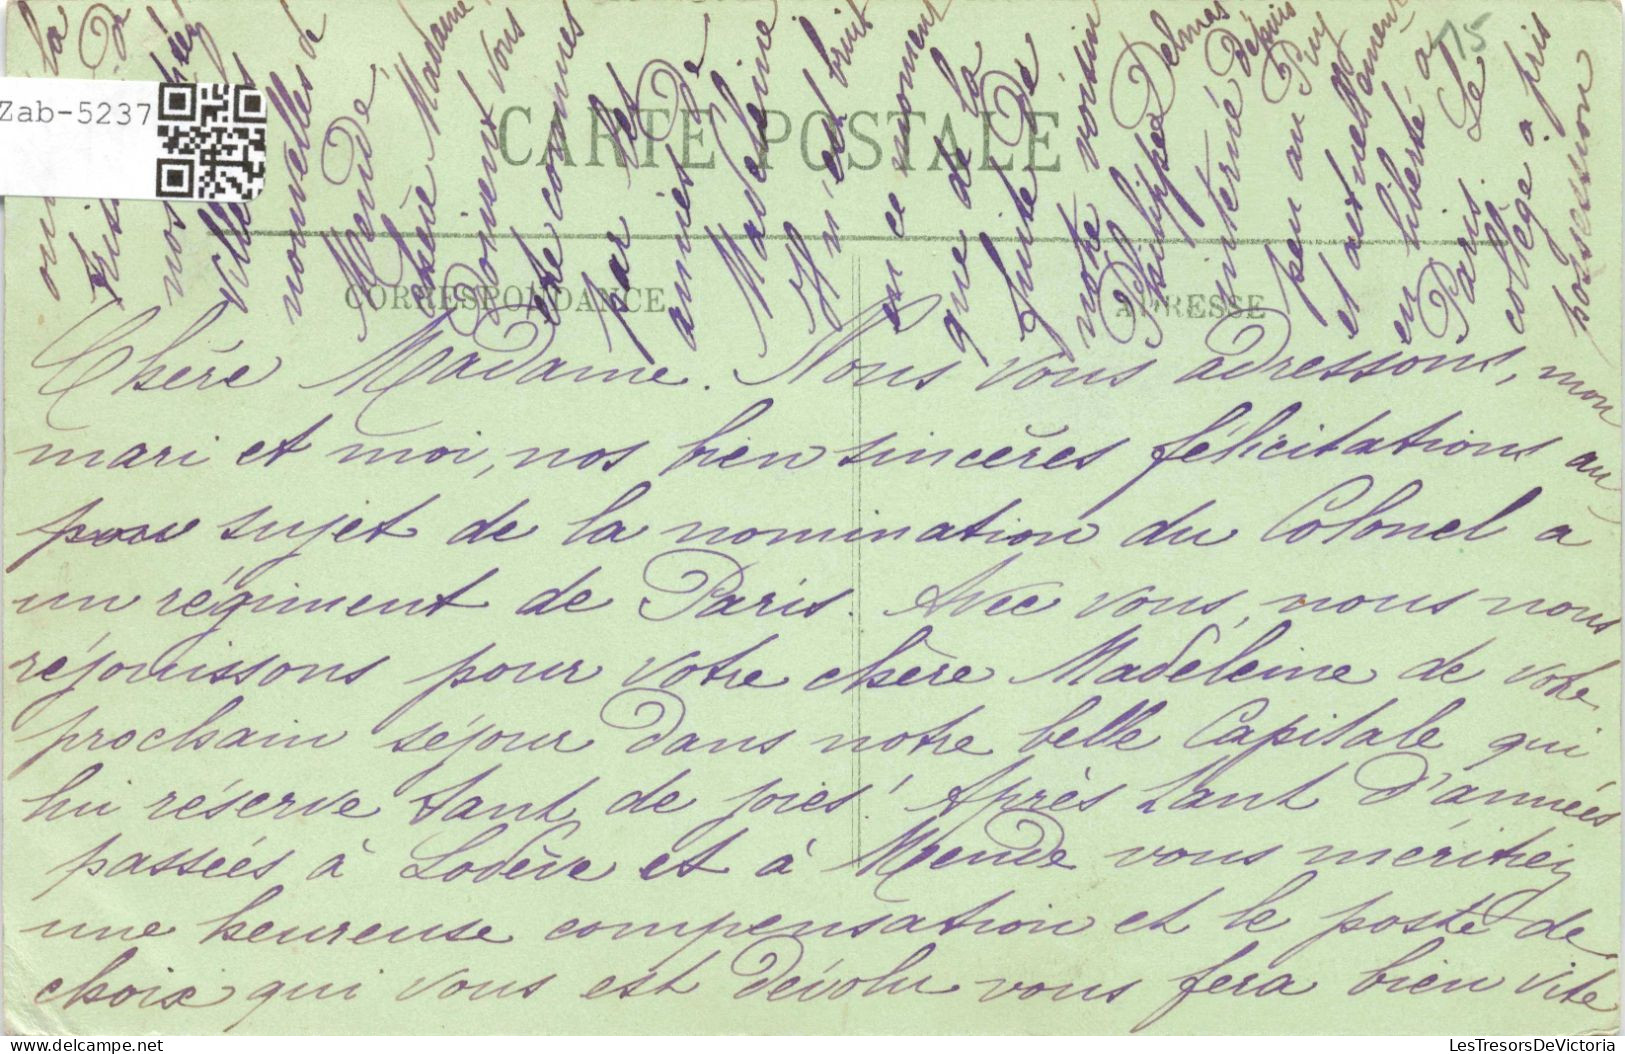 Zab-5237
15
CARTE POSTALE
CORRESPONDANCE
ADRESSE
Chère Madame. Nous vous adressons, mon
mari et moi, nos bien sincères félicitations au
sujet de la nomination du Colonel à
un régiment de Paris. Avec vous, nous nous
réjouissons pour votre chère Madeleine de votre
prochain séjour dans notre belle Capitale qui
lui réserve tant de joies! Après tant d'années
passées à Lodève et à Mende vous méritiez
une heureuse compensation et le poste de
choix qui vous est dévolu vous fera bien vite
ou la
nos
nouvelles de
Mende
chère Madame
doivent vous
être connues
par les
amies de
Madeleine
Il n'est bruit
en ce moment
que de la
fuite de
notre voisin
Philippe Delmas
interné depuis
peu au Puy
et actuellement
en liberté à
Paris. Le
collège a pris
possession